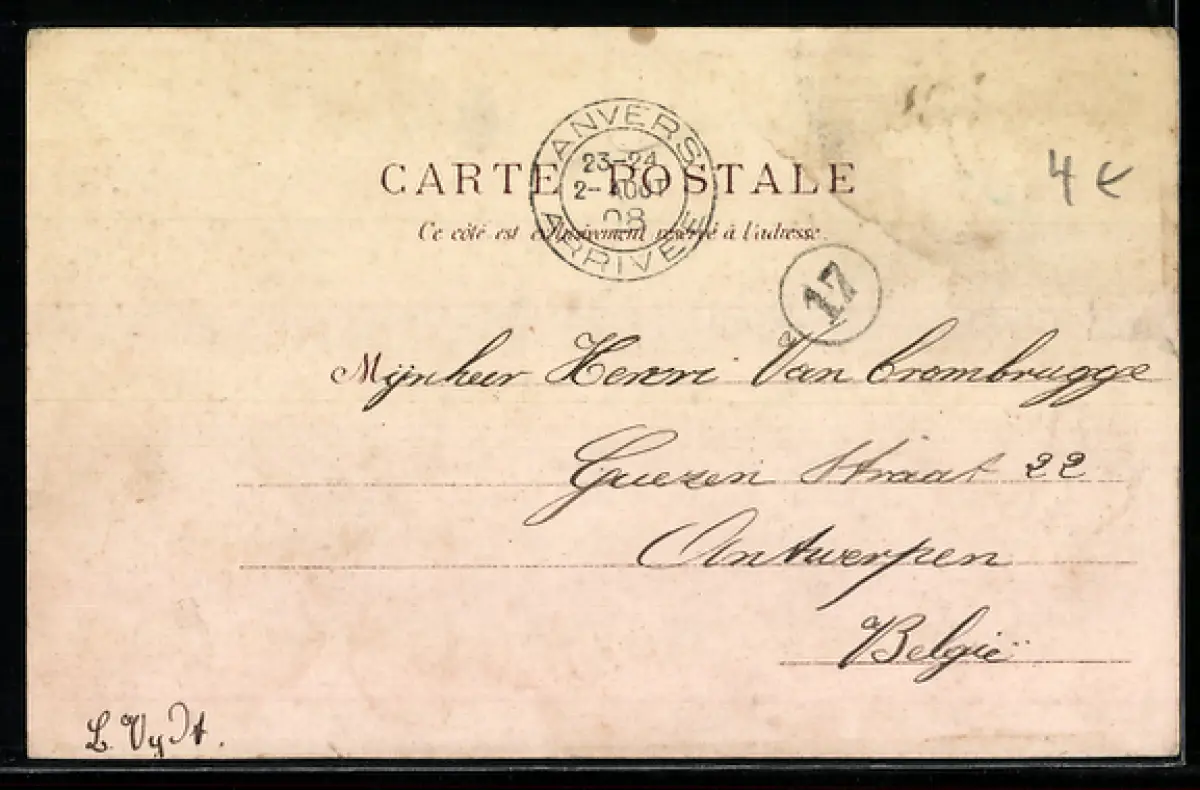 CARTE POSTALE
Ce côté est exclusivement réservé à l'adresse.
ANVERS
23-24
2-AOUT
08
ARRIVEE
4 €
17
Mijnheer Henri Van Crombrugge
Guezen Straat 22
Antwerpen
België
L. Vydt.